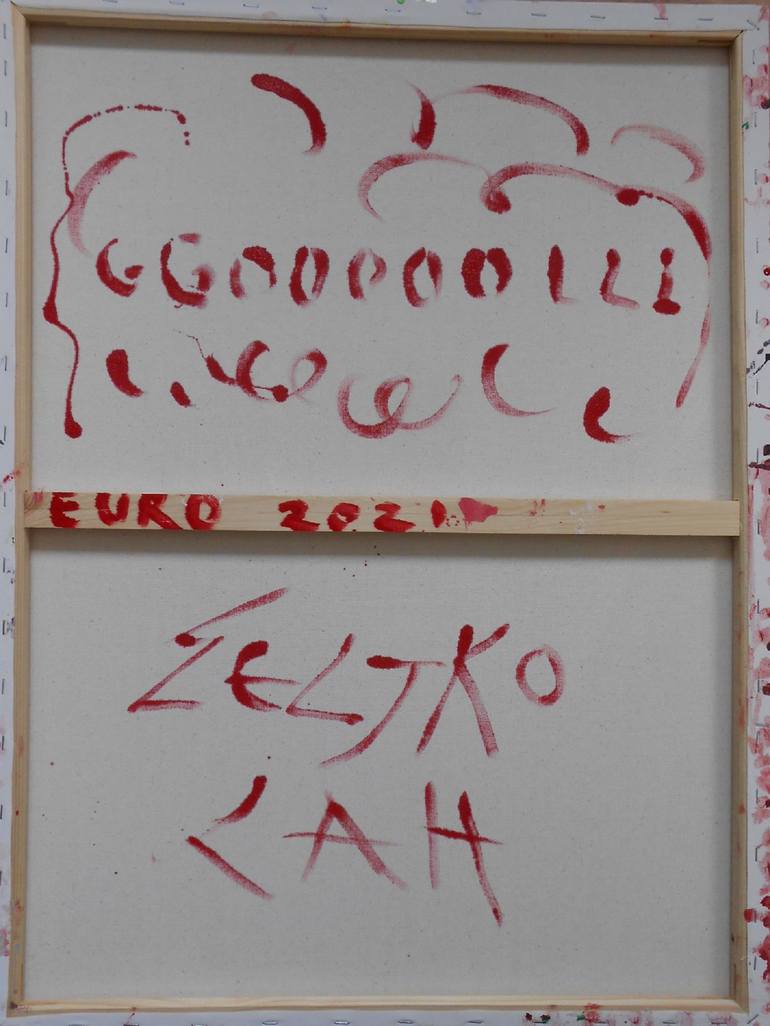 GGOOOOOLLL
EURO 2021
ZELJKO
LAH